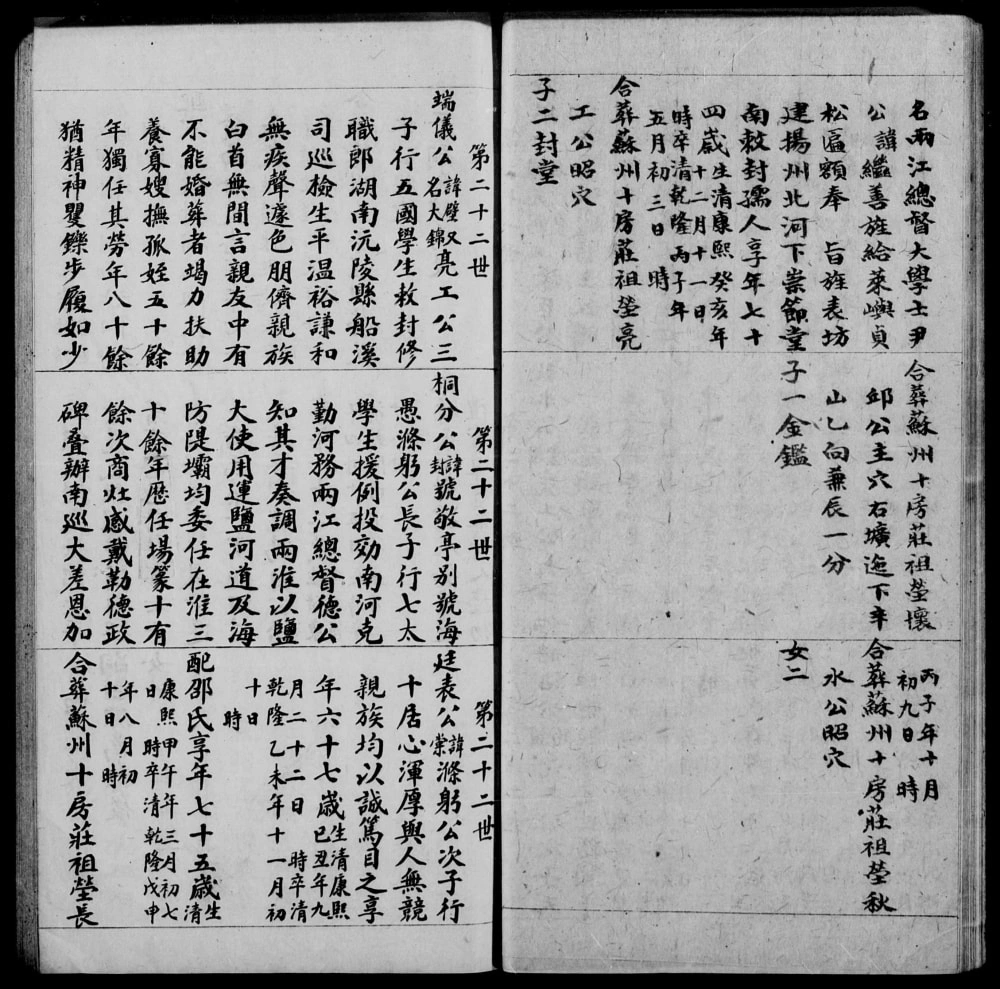 名兩江總督大學士尹
公諱繼善旌給萊嶼貞
松匾額奉　旨旌表坊
建揚州北河下崇節堂
南敕封孺人享年七十
四歲生清康熙癸亥年
十二月十一日
時卒清乾隆丙子年
五月初三日　時
合葬蘇州十房莊祖塋亮
工公昭穴
子二封堂
合葬蘇州十房莊祖塋壤
邱公主穴右壙迤下辛
山乙向兼辰一分
子一金鑑
丙子年十月
初九日　時
合葬蘇州十房莊祖塋秋
水公昭穴
女二
第二十二世
端儀公諱璧又名大錦亮工公三
子行五國學生敕封修
職郎湖南沅陵縣船溪
司巡檢生平溫裕謙和
無疾聲遽色朋儕親族
白首無間言親友中有
不能婚葬者竭力扶助
養寡嫂撫孤姪五十餘
年獨任其勞年八十餘
猶精神矍鑠步履如少
第二十二世
桐分公諱封號敬亭別號海
愚滌躬公長子行七太
學生援例投効南河克
勤河務兩江總督德公
知其才奏調兩淮以鹽
大使用運鹽河道及海
防隄壩均委任在淮三
十餘年歷任場篆十有
餘次商灶感戴勒德政
碑疊辦南巡大差恩加
第二十二世
廷表公諱棠滌躬公次子行
十居心渾厚與人無競
親族均以誠篤目之享
年六十七歲生清康熙
己丑年九
月二十二日　時卒清
乾隆乙未年十一月初
十日　時
配邵氏享年七十五歲生清
康熙甲午年三月初七
日　時卒清乾隆戊申
年八月初
十日　時
合葬蘇州十房莊祖塋長